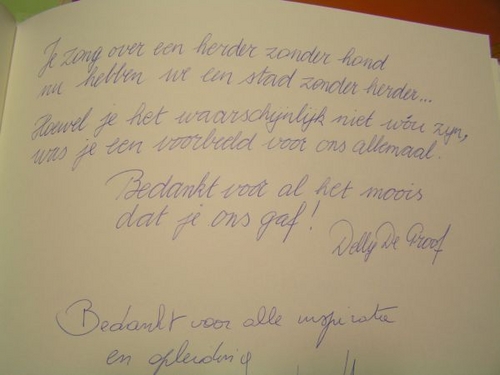 Je zong over een herder zonder hond
nu hebben we een stad zonder herder...
Hoewel je het waarschijnlijk niet wou zijn,
was je een voorbeeld voor ons allemaal.
Bedankt voor al het moois
dat je ons gaf!
Delly De Proof
Bedankt voor alle inspiratie
en opleiding